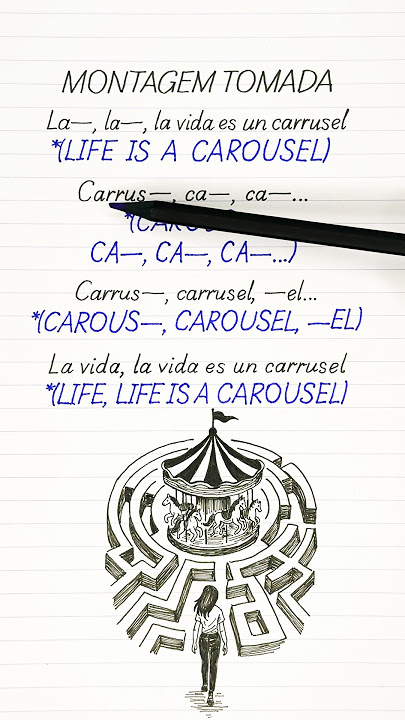 MONTAGEM TOMADA
La—, la—, la vida es un carrusel
*(LIFE IS A CAROUSEL)
Carrus—, ca—, ca—...
CA—, CA—, CA—...)
Carrus—, carrusel, —el...
*(CAROUS—, CAROUSEL, —EL)
La vida, la vida es un carrusel
*(LIFE, LIFE IS A CAROUSEL)